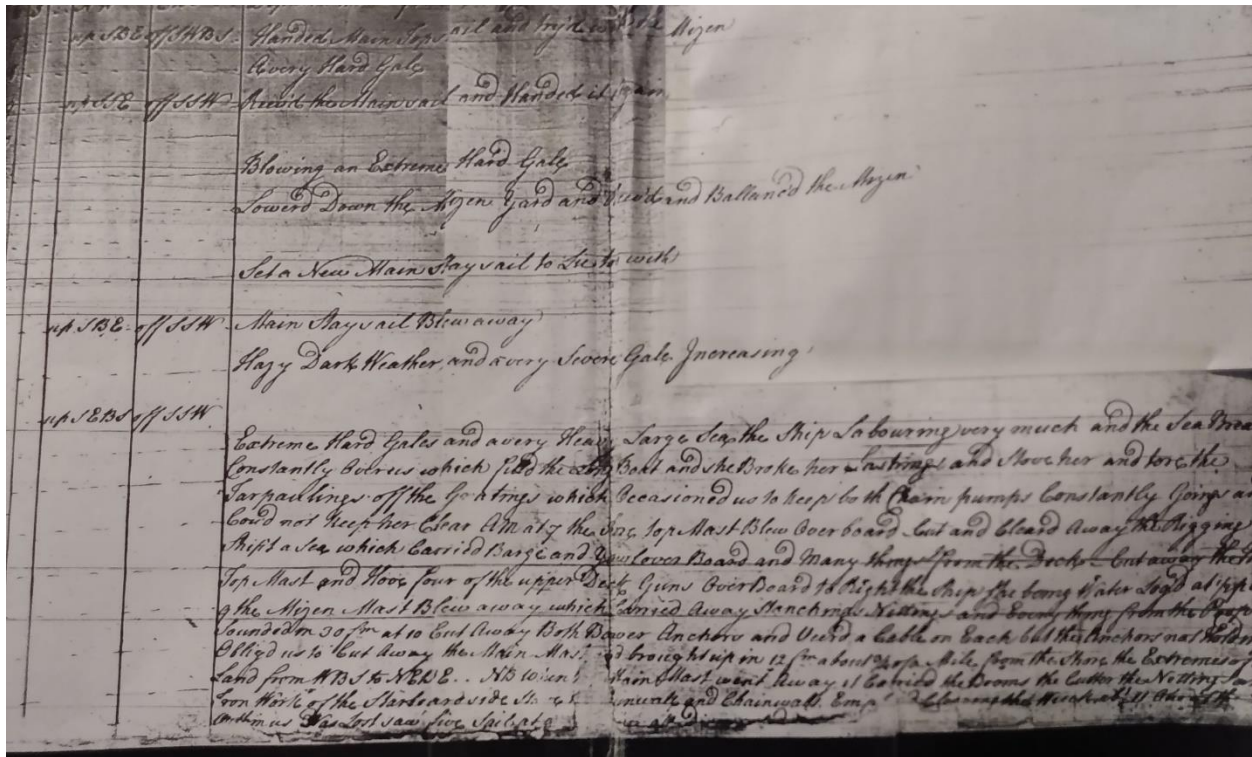 up SBE off SWBS Handed Main Topsail and try'd with the Mizen
A very Hard Gale
up SSE off SSW Reev'd the Mainsail and Handed it again
Blowing an Extreme Hard Gale
Lowerd Down the Mizen Yard and and Ballanc'd the Mizen
Set a New Main Staysail to Lie to with
up SBE off SSW Main Staysail Blew away
Hazy Dark Weather and a very Severe Gale Increasing
up SEBS off SSW
Extreme Hard Gales and a very Heavy Large Sea, the Ship Labouring very much and the Sea Brea
Constantly Over us which filld the Boat and she Broke her Lashings and Stove her and tore the
Tarpaulings off the Gratings which Occasioned us to keep both Chain pumps Constantly Going a
Coud not keep her Clear AM at 7 the Top Mast Blew Over board Cut and Cleard Away the Rigging
Ship't a Sea which Carried Barge and Yawl over Board and Many things from the Decks Cut away the
Top Mast and Hove four of the upper Deck Guns Over Board to Right the Ship She being Water Log'd at
9 the Mizen Mast Blew away which Carried Away Stanchings Nettings and Every thing from the Poop
Sounded in 30 fm at 10 Cut Away Both Bower Anchors and Veerd a Cable on Each but the Anchors not Hold
Obligd us to Cut Away the Main Mast brought up in 12 fm about Mile from the Shore the Extremes of
Land from WBS to NEBE NB When Main Mast went Away it Carried the Booms the Cutter the Netting
Iron Work of the Starboard side and Chainwals Emp'd Clearing the Wreck at 11
was Lost saw five Sail at